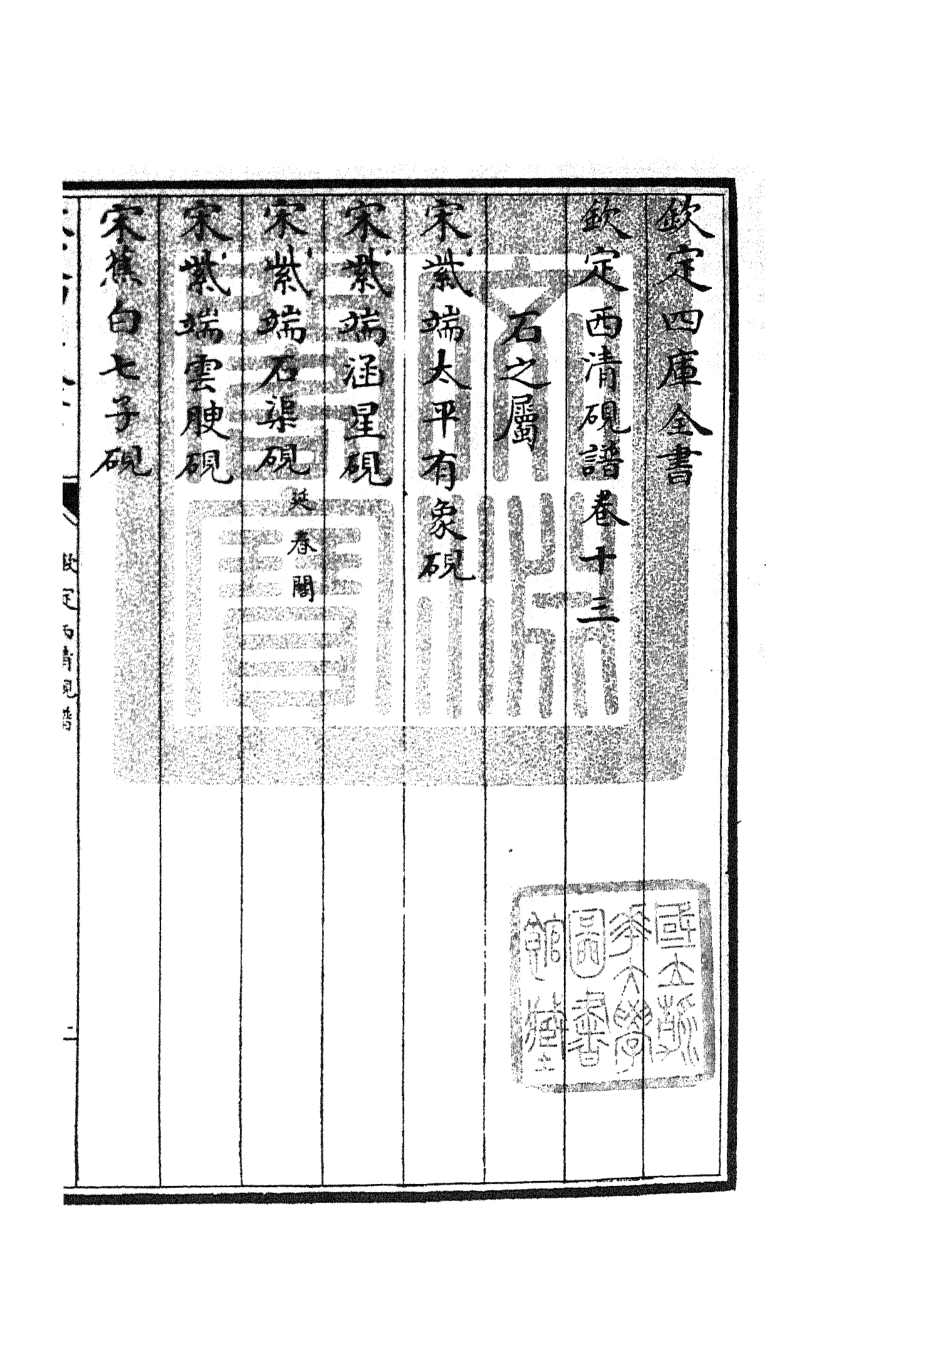 欽定四庫全書
欽定西清硯譜卷十三
石之屬
宋紫端太平有象硯
宋紫端涵星硯
宋紫端石渠硯 延春閣
宋紫端雲腴硯
宋蕉白七子硯
欽定西清硯譜
文淵閣寶
國立浙
江大學
圖書
館藏